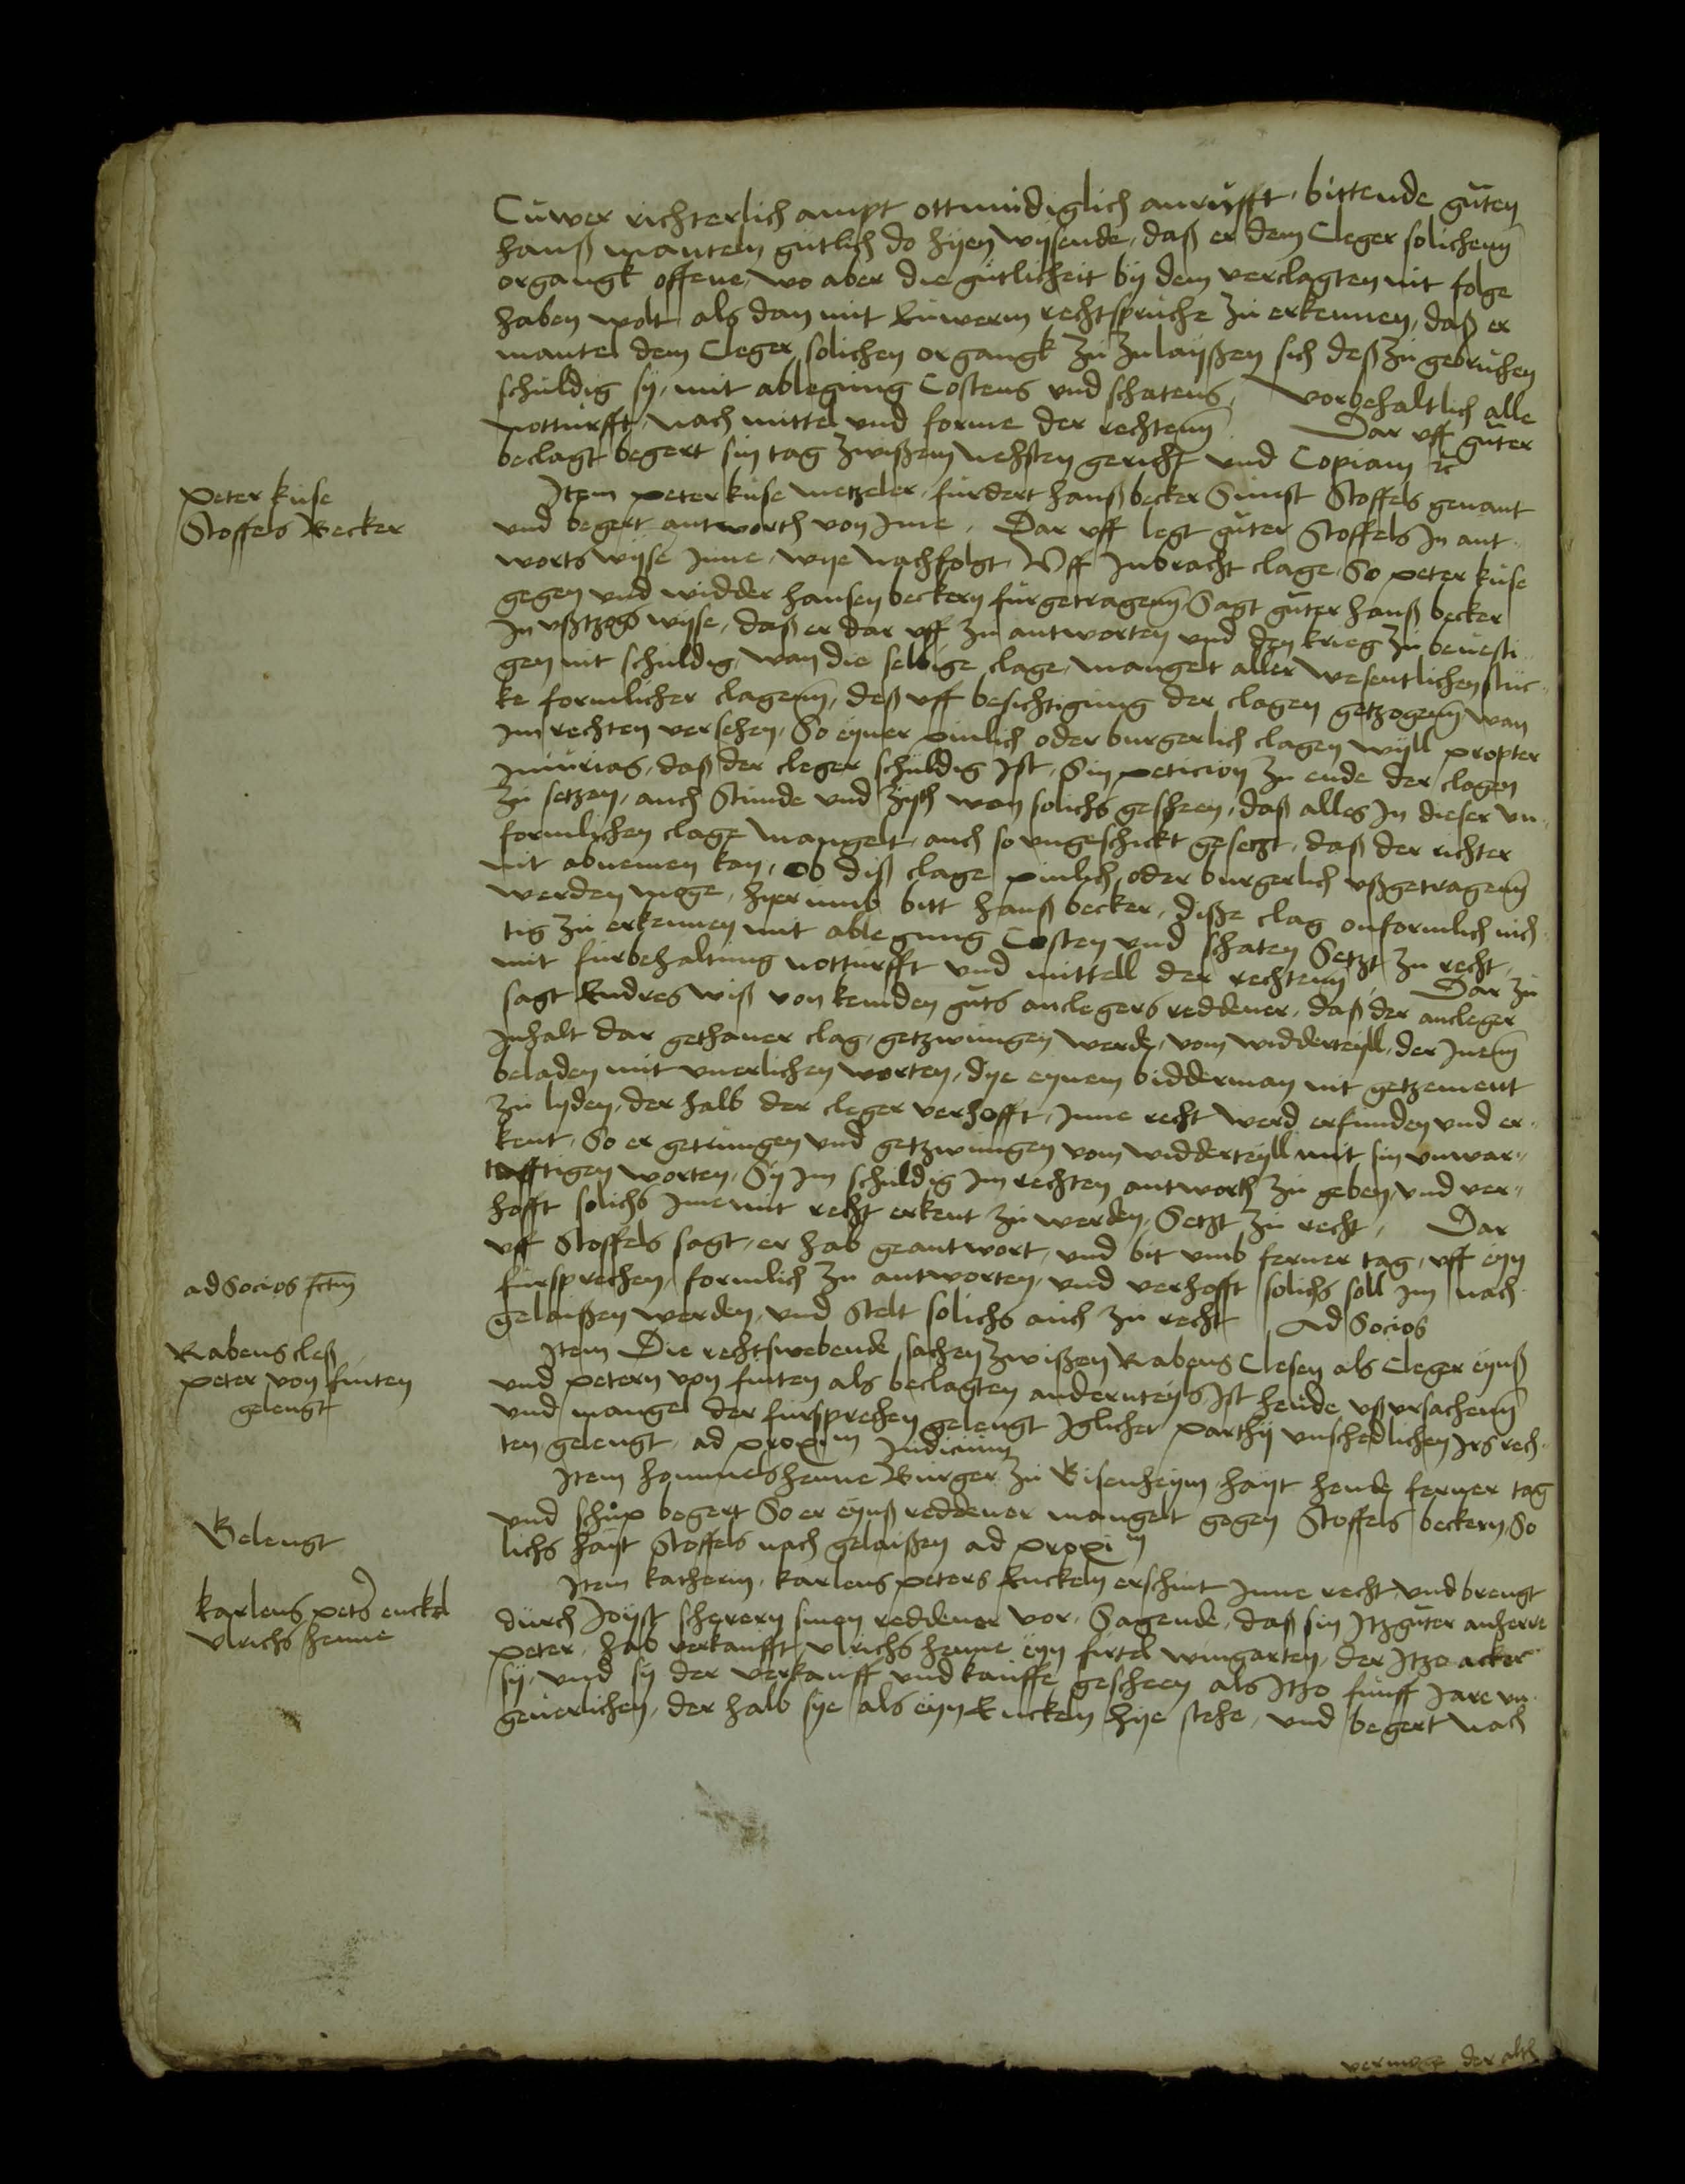 Euwer richterlich ampt ottmudiglich anrufft, bittende guten
hanß manteln gutlich do hyen wysende, daß er dem Cleger solichenn
organgk offene, wo aber die gutlicheit by dem verclagten nit folge
haben wolt als dan mit Euwerm rechtspruche zu erkennen, daß er
mantel dem Cleger solichen organgk zu zulayßen sich deß zu gebruchen
schuldig sy, mit ablegung Costens und schatens, vorbehaltlich alle
notturfft, nach mittel und forme der rechtenn Dar uff guter
beclagt begert sin tag zwißem nehsten gericht und Copiam etc
Peter kuse
Stoffels Becker
Item peter kuse metzeler, furdert hanß becker Sunst Stoffels genant
und begert antworth von Ime, Dar uff legt guter Stoffels In ant-
worts wyse Inne, wye nachfolgt, Uff Inbracht clage, So peter kuse
gegen und widder hansen beckern furgetragenn Sagt guter hanß becker
In ußtzogs wyse, daß er dar uff zu antworten und den krieg zu bevesti-
gen nit schuldig, wan die selbige clage, mangelt aller wesentlichen stuc-
ke formlicher clagenn, deß uff besichtigung der clagen getzogenn wan
Im rechten versehen, So eyner pinlich oder burgerlich clagen wyll propter
Iniurias, daß der cleger schuldig Ist, Sin peticion zu ende der clagen
zu setzen, auch Stunde und zyth wan solichs gescheen, daß alles In dieser un-
formlichen clage mangelt, auch so ungeschickt gesetzt, daß der richter
nit abnemen kan, Ob diß clage pinlich, oder burgerlich ußgetragenn
werden moge, hyerumb bitt hanß becker, diße clag onformlich nich-
tig zu erkennen mit ablegung Costen und schaten Setzt zu recht,
mit furbehaltung notturfft und mittell der rechtenn Dar zu
sagt Endres wiß von kemden guts anclegers reddener, daß der ancleger
Inhalt dar gethaner clag, getzwungen werde, vom widderteyll, der Inenn
beladen mit unerlichen worten, dye eynem bidderman nit getzement
zu lyden, der halb der cleger verhofft, Inne recht werd erfunden und er-
kent, So er getrungen und getzwungen vom widderteyll mit sin unwar-
hafftigen worten, Sy Im schuldig Im rechten antworth zu geben, und ver-
hofft solichs Ime mit recht erkent zu werden, Setzt zu recht, Dar
uff Stoffels sagt, er hab geantwort, und bit umb ferner tag, uff eyn
fursprechen, formlich zu antworten, und verhofft solichs soll Im nach
gelaißen werden, und Stelt solichs auch zu recht Ad Socios
ad Socios fctm
Rabens cleß
peter von finten
gelengt
Item Die rechtswebende sachen zwißen Rabens Clesen als Cleger eynß
und petern von finten als beclagten andernteyls Ist heude uß ursachenn
und mangel der fursprechen gelengt Iglicher parthy unschedlichen Irs rech-
ten, gelengt, ad proximum Iudicium
Gelengt
Item hommes henne Burger zu Bisenheym hayt heude ferner tag
und schup begert So er eynß reddener mangelt gegen Stoffels beckern, So
lichs hayt Stoffels nach gelaißen ad proximum
karlens peters enckel
Ulrichs henne
Item katherin, karlens peters Enckeln erschint Inne recht und brengt
durch Joyst scherern sinen reddener vor, Sagende, daß sin Itzguter anherre
peter, hab verkaufft ulrichs henne eyn firtel wingarten, der Itzo acker
sy, und sy der verkauff und kauffe gescheen als Itzo funff Jare un-
geuerlichen, der halb sye als eyn Enckeln hye stehe, und begert nach
vermoge der alth